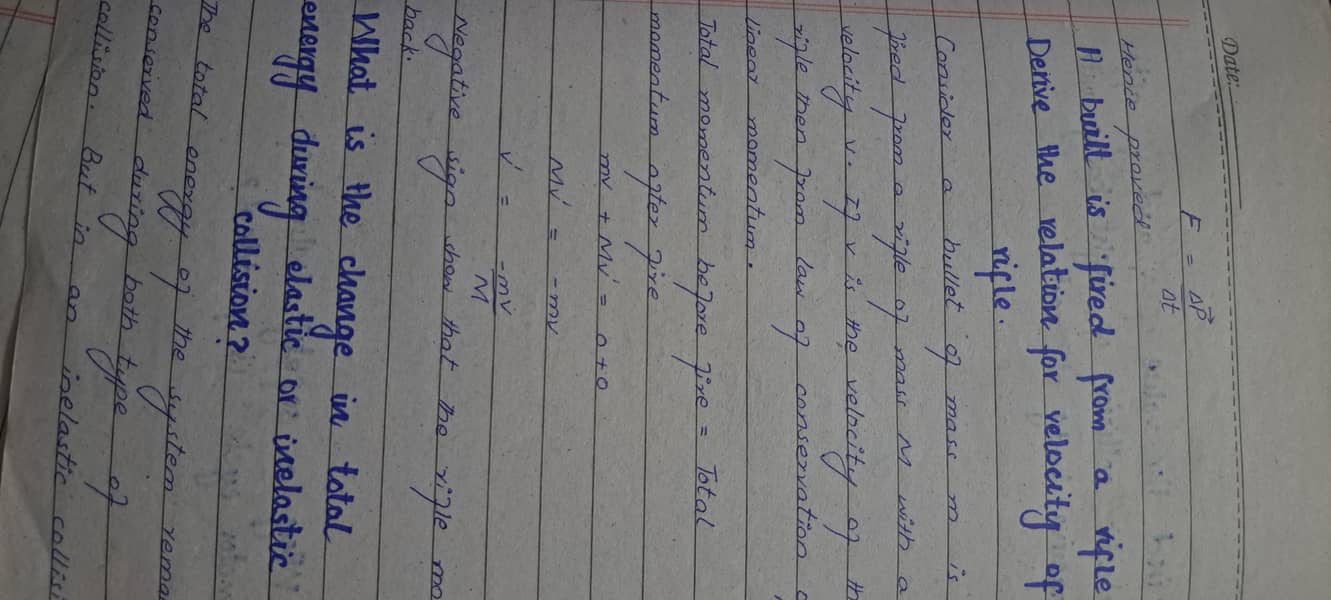 Date:
F = ΔP⃗/Δt
Hence proved
A buılt is fired from a rifle
Derive the relation for velocity of
rifle.
Consider a bullet of mass m is
fired from a rifle of mass M with a
velocity v. If v' is the velocity of
rifle then from law of conservation
linear momentum.
Total momentum before fire = Total
momentum after fire
mv + Mv' = 0+0
Mv' = -mv
v' = -mv/M
Negative sign show that the rifle
back.
What is the change in total
energy during elastic or inelastic
collision?
The total energy of the system
conserved during both type of
collision. But in an inelastic